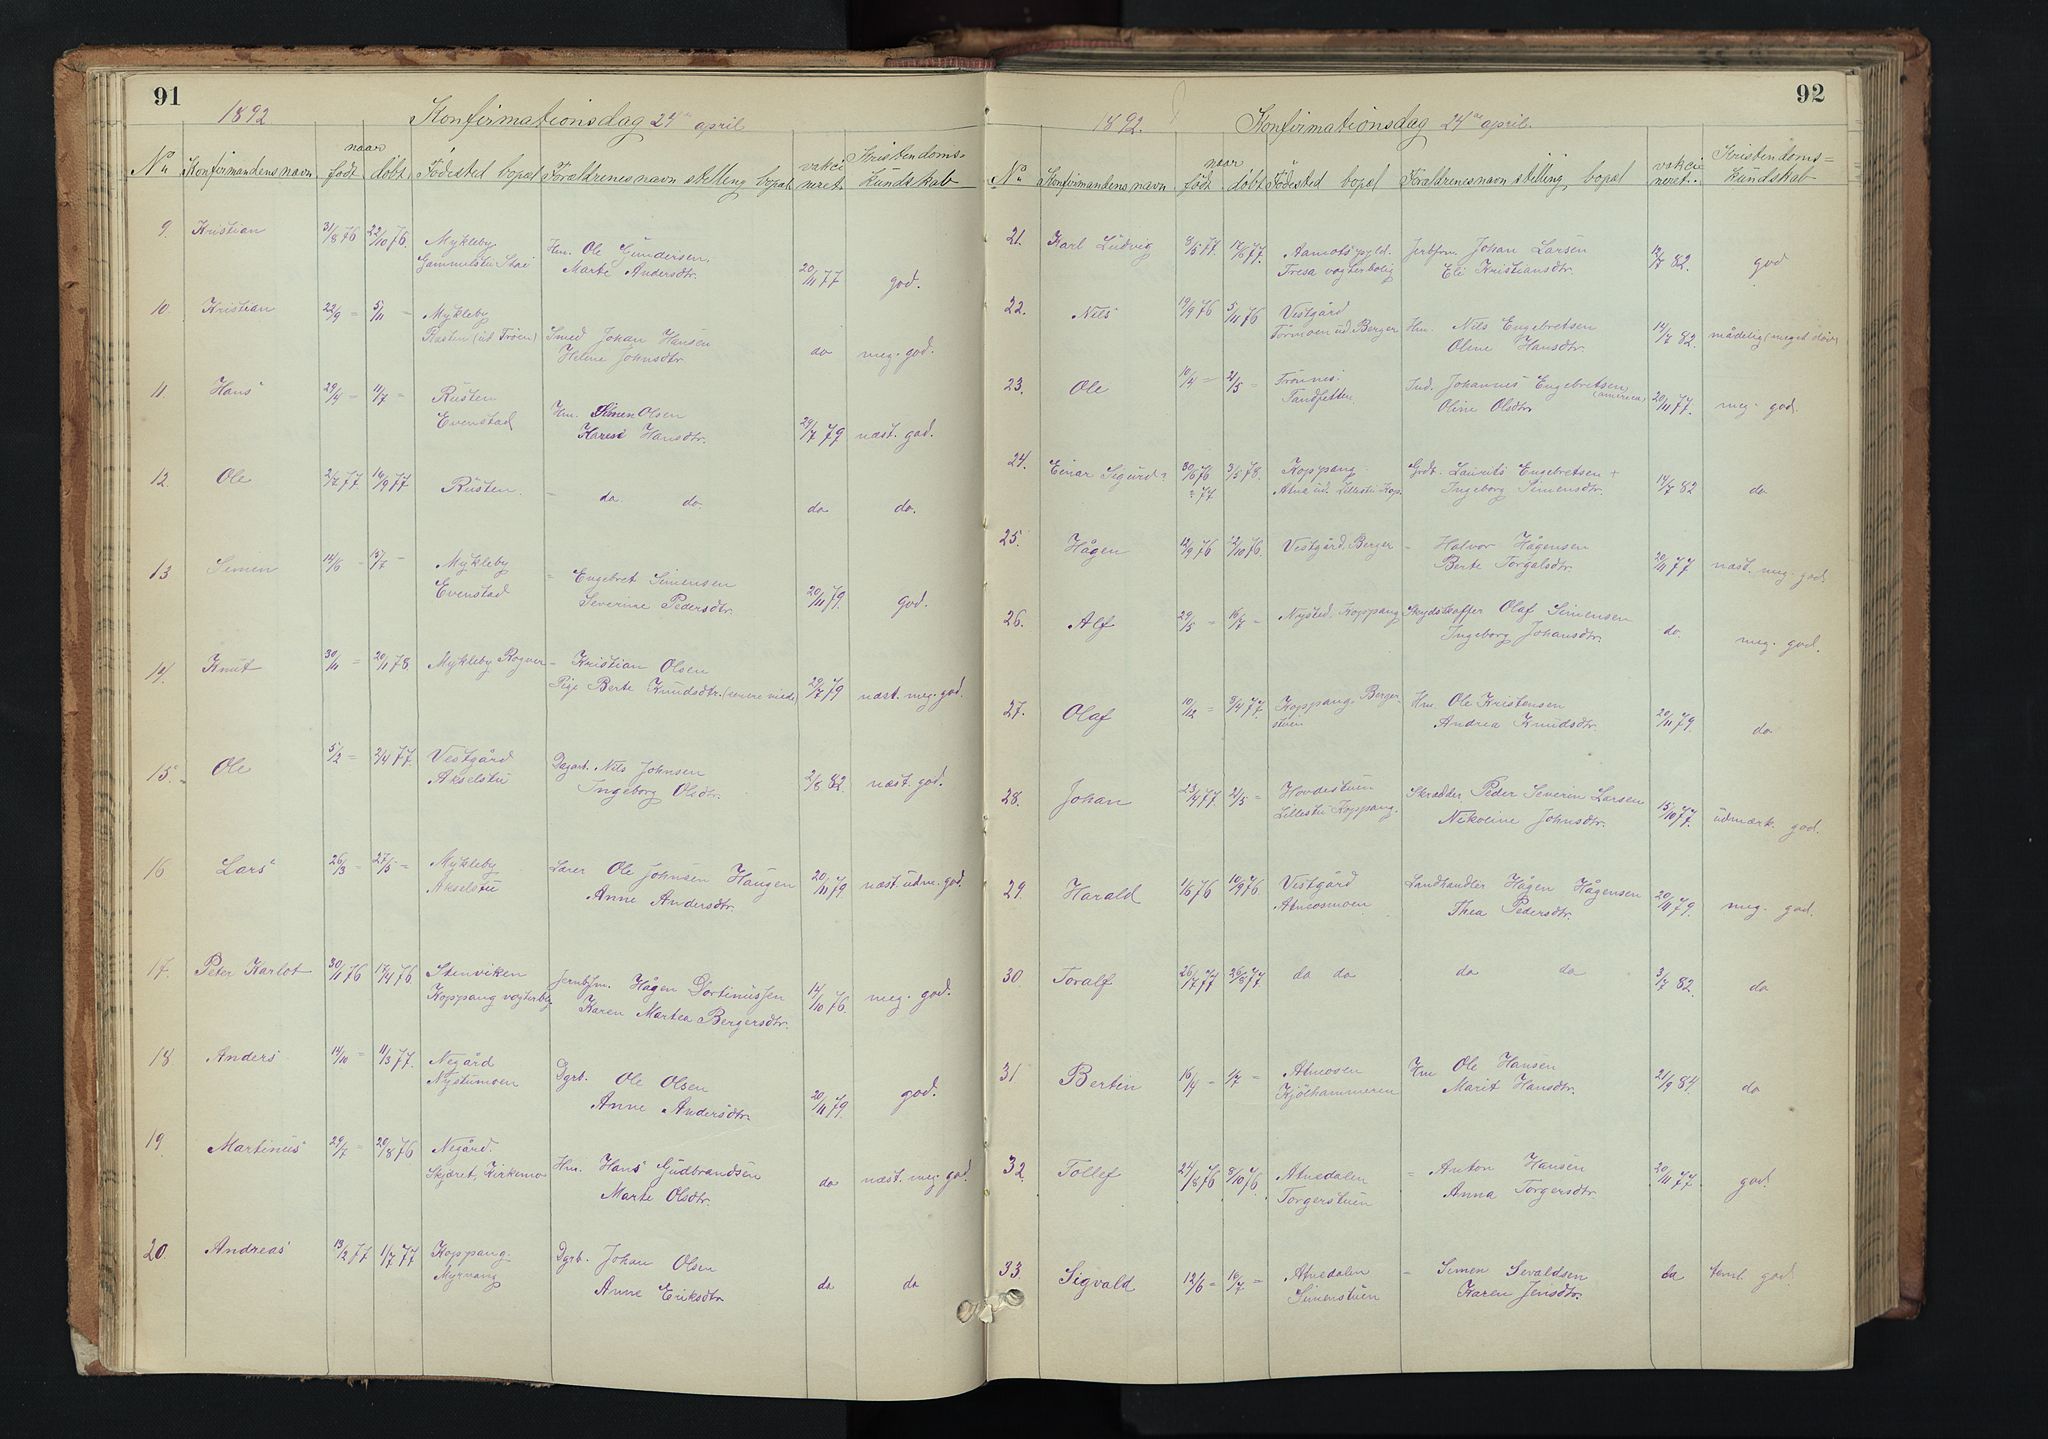 91
1892 Konfirmationsdag 24de april
naar
No Konfirmandens navn født døbt Fødested bopæl Forældrenes navn stilling bopæl vakci Kristendoms=
neret. kundskab
9. Kristian 31/8 76 22/10 76. Mykleby Hm. Ole Gundersen.
Gammelstu Stai Marte Andersdtr. 20/11 77 god.
10. Kristian 22/9 = 5/11 = Mykleby
Rasten (ud Trøen) Smed Johan Hansen
Helene Johnsdtr. do meg. god.
11. Hans 29/4 = 11/7 = Rusten Hm. Simen Olsen
Evenstad Karen Hansdtr. 29/7 79 næst. god.
12. Ole 2/7 77. 16/9 77 Rusten. = do do. do do.
13 Simen 14/6 = 15/7 = Mykleby = Engebret Simensen
Evenstad Severine Pedersdtr. 20/11 79. god.
14 Knut 30/11 = 20/1 78 Mykleby Rogner = Kristian Olsen
Pige Berte Knudsdtr. 29/7 79 næst. meg. god.
15. Ole 5/2 = 2/4 77. Vestgård Dagarb. Nils Johnsen
Akselstu Ingeborg Olsdtr. 2/8 82. næst. god.
16 Lars 26/3 = 27/5 = Mykleby Lærer Ole Johnsen Haugen
Akselstu Anne Andersdtr. 20/11 79. næst. udm. god.
17. Peter Karlot 30/1 76 17/4 76. Stenviken Jernbfm. Hågen Dortinussen
Koppang vogterbg Karen Martea Bergersdtr. 14/10 76. meg. god.
18 Anders 14/10 = 11/3 77. Negård Dgrb. Ole Olsen
Nystumoen Anne Andersdtr. 20/11 79. god.
19. Martinus 29/7 = 20/8 76 Negård. Hm. Hans Gudbrandsen
Skjæret, Kirkemo Marte Olsdtr. do næst. meg. god.
20. Andreas 13/2 77 1/7 77 Koppang. Dgrb. Johan Olsen
Myrvang Anne Eriksdtr. do do
92
1892. Konfirmationsdag 24de april.
naar
No Konfirmandens navn født døbt Fødested bopæl Forældrenes navn stilling, bopæl vakci Kristendoms=
neret. kundskab
21. Karl Ludvig 8/5 77. 17/6 77. Aamots pgld. Jerbfm. Johan Larsen
Tresa vogterbolig Eli Kristiansdtr. 12/7 82. god
22. Nils 19/9 76 5/11 76 Vestgård Hm. Nils Engebretsen
Tørmoen ud. Berger Oline Hansdtr. 14/7 82. mådelig (meget sløv)
23. Ole 16/4 = 21/5 = Trønnes. Ind. Johannes Engebretsen (america)
Sandfetten. Oline Olsdtr 20/11 77. meg. god.
24. Einar Sigurd 30/6 76 3/5 78. Koppang Grdt. Laurits Engebretsen +
? 77 Atna ud. Lillestu Kop. Ingeborg Simensdtr. 14/7 82 do
25. Hågen 12/9 76 12/10 76. Vestgård. Berger = Halvor Hågensen
Berte Torgalsdtr. 20/11 77 næst. meg. god.
26. Alf 29/5 = 16/7 = Nysted. Koppang Skydskaffer Olaf Simensen
Ingeborg Johansdtr. do. meg. god.
27. Olaf 10/12 = 8/4 77. Koppang. Berger Hm. Ole Kristensen
stuen Andrea Knudsdtr. 20/11 79. do
28. Johan 23/4 77. 21/5 = Hovdestuen Skrædder Peder Severin Larsen
Lillestu Koppang. Nikoline Johnsdtr. 15/10 77. udmærk. god.
29. Harald 1/6 76 10/9 76 Vestgård Landhandler Hågen Hågensen
Atneosmoen Thea Pedersdtr. 20/11 79. meg. god.
30 Toralf 26/7 77 26/8 77 do do do do 3/7 82. do
31 Bertin 16/4 = 1/7 = Atneosen Hm Ole Hansen
Kjølhammeren Marit Hansdtr. 21/9 84. do
32. Tollef 21/8 76 8/10 76. Atnedalen = Anton Hansen
Torgerstuen Anna Torgersdtr. 20/11 77. god.
33. Sigvald 12/6 = 16/7 = Atnedalen = Simen Sevaldsen
Simenstuen Karen Jensdtr. do teml. god.